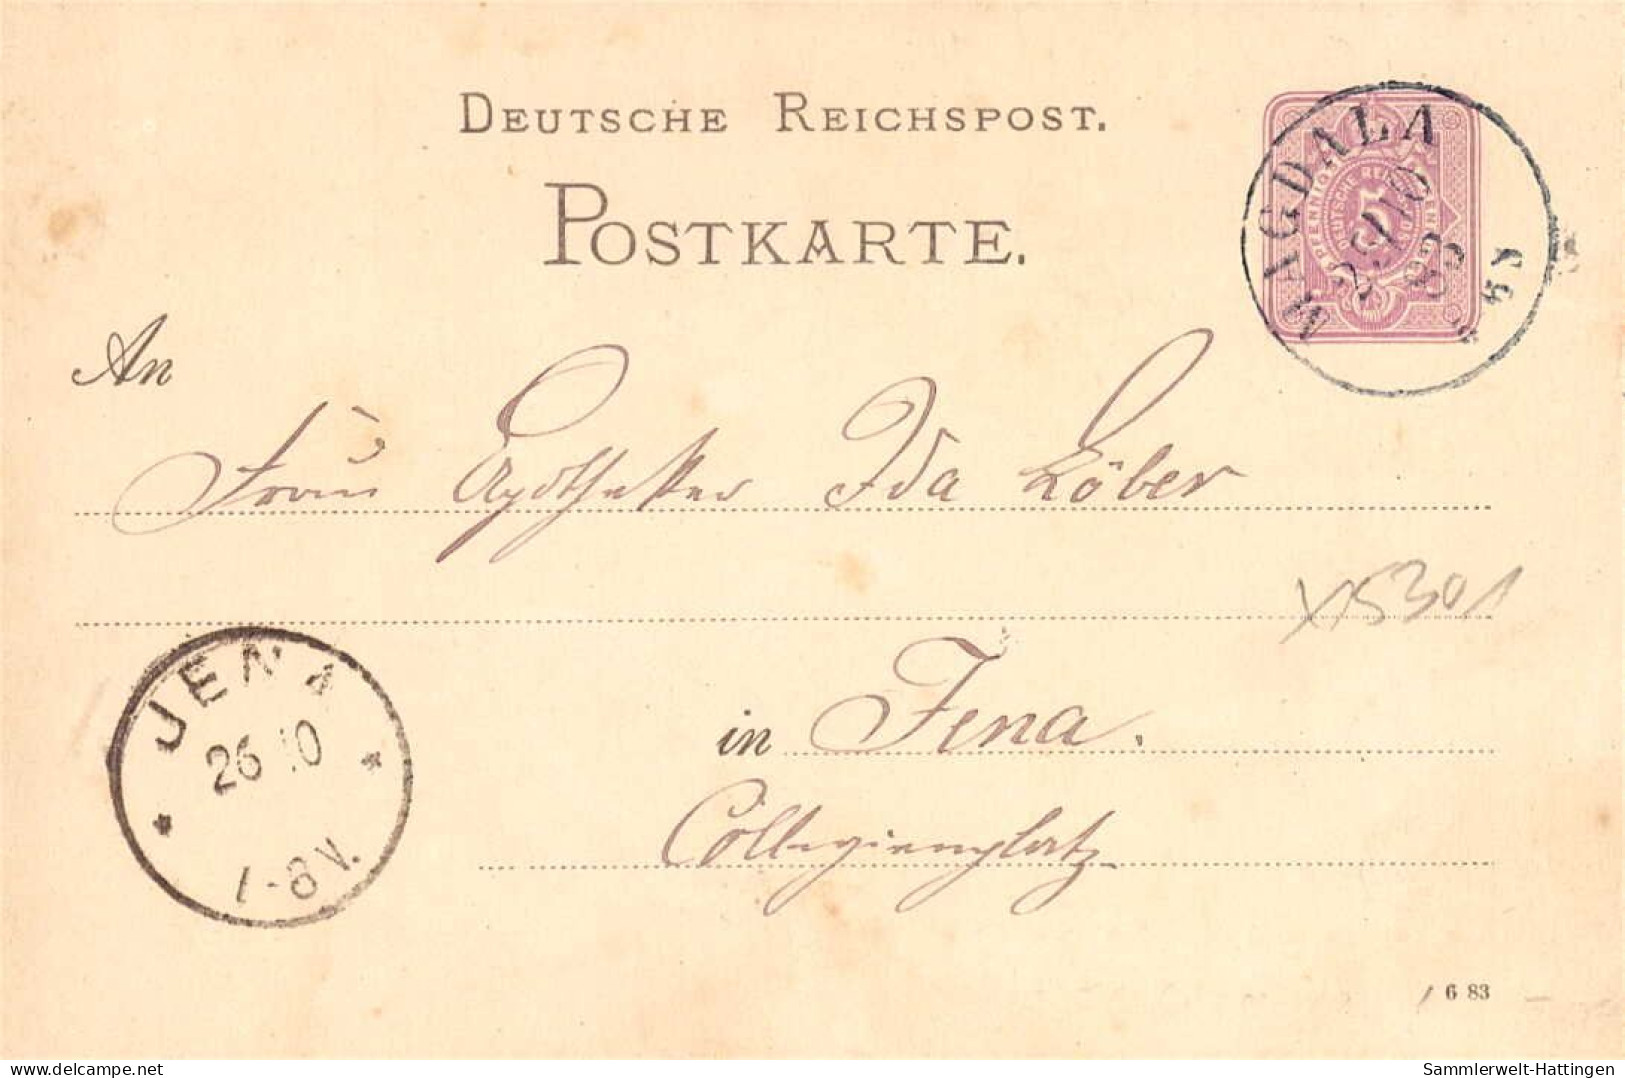 DEUTSCHE REICHSPOST.
POSTKARTE.
MAGDALA
25/10
83
5
An
Frau Apotheker Ida Löber
X15301
JENA
26 10
7-8 V.
in Jena.
Collegienplatz
6 83
delcampe.net
Sammlerwelt-Hattingen